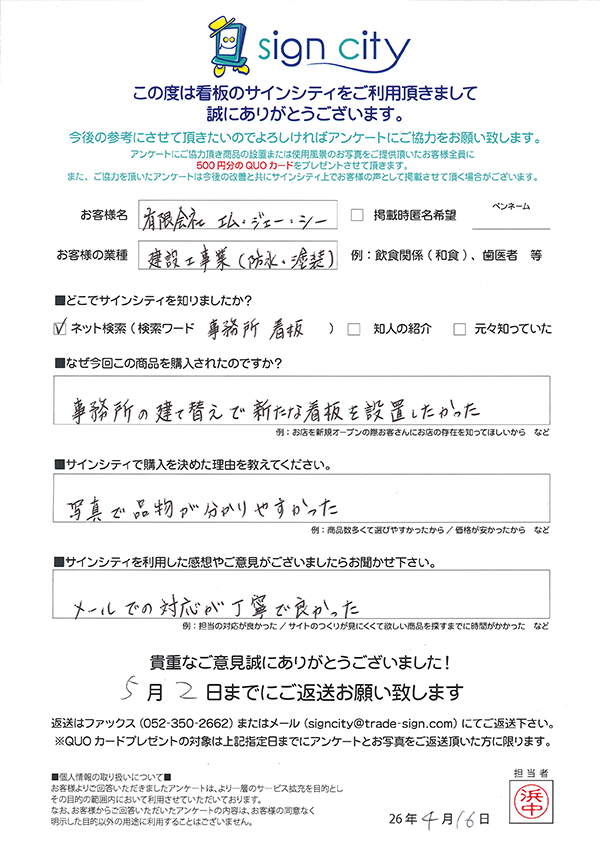 sign city
この度は看板のサインシティをご利用頂きまして
誠にありがとうございます。
今後の参考にさせて頂きたいのでよろしければアンケートにご協力をお願い致します。
アンケートにご協力頂き商品の設置または使用風景のお写真をご提供頂いたお客様全員に
500円分のQUOカードをプレゼントさせて頂きます。
また、ご協力を頂いたアンケートは今後の改善と共にサインシティ上でお客様の声として掲載させて頂く場合がございます。
お客様名 有限会社 エム・ジェー・シー □ 掲載時匿名希望 ペンネーム
お客様の業種 建設工事業(防水・塗装) 例：飲食関係（和食）、歯医者 等
■どこでサインシティを知りましたか？
☑ ネット検索（検索ワード 事務所 看板 ） □ 知人の紹介 □ 元々知っていた
■なぜ今回この商品を購入されたのですか？
事務所の建て替えで新たな看板を設置したかった
例：お店を新規オープンの際お客さんにお店の存在を知ってほしいから など
■サインシティで購入を決めた理由を教えてください。
写真で品物が分かりやすかった
例：商品数多くて選びやすかったから／価格が安かったから など
■サインシティを利用した感想やご意見がございましたらお聞かせ下さい。
メールでの対応が丁寧で良かった
例：担当の対応が良かった／サイトのつくりが見にくくて欲しい商品を探すまでに時間がかかった など
貴重なご意見誠にありがとうございました！
5月2日までにご返送お願い致します
返送はファックス（052-350-2662）またはメール（signcity@trade-sign.com）にてご返送下さい。
※QUOカードプレゼントの対象は上記指定日までにアンケートとお写真をご返送頂いた方に限ります。
■個人情報の取り扱いについて■
お客様よりご回答いただきましたアンケートは、より一層のサービス拡充を目的とし
その目的の範囲内において利用させていただいております。
なお、お客様からご回答いただいたアンケートの内容は、お客様の同意なく
明示した目的以外の用途に利用することはございません。
担当者
浜中
26年4月16日